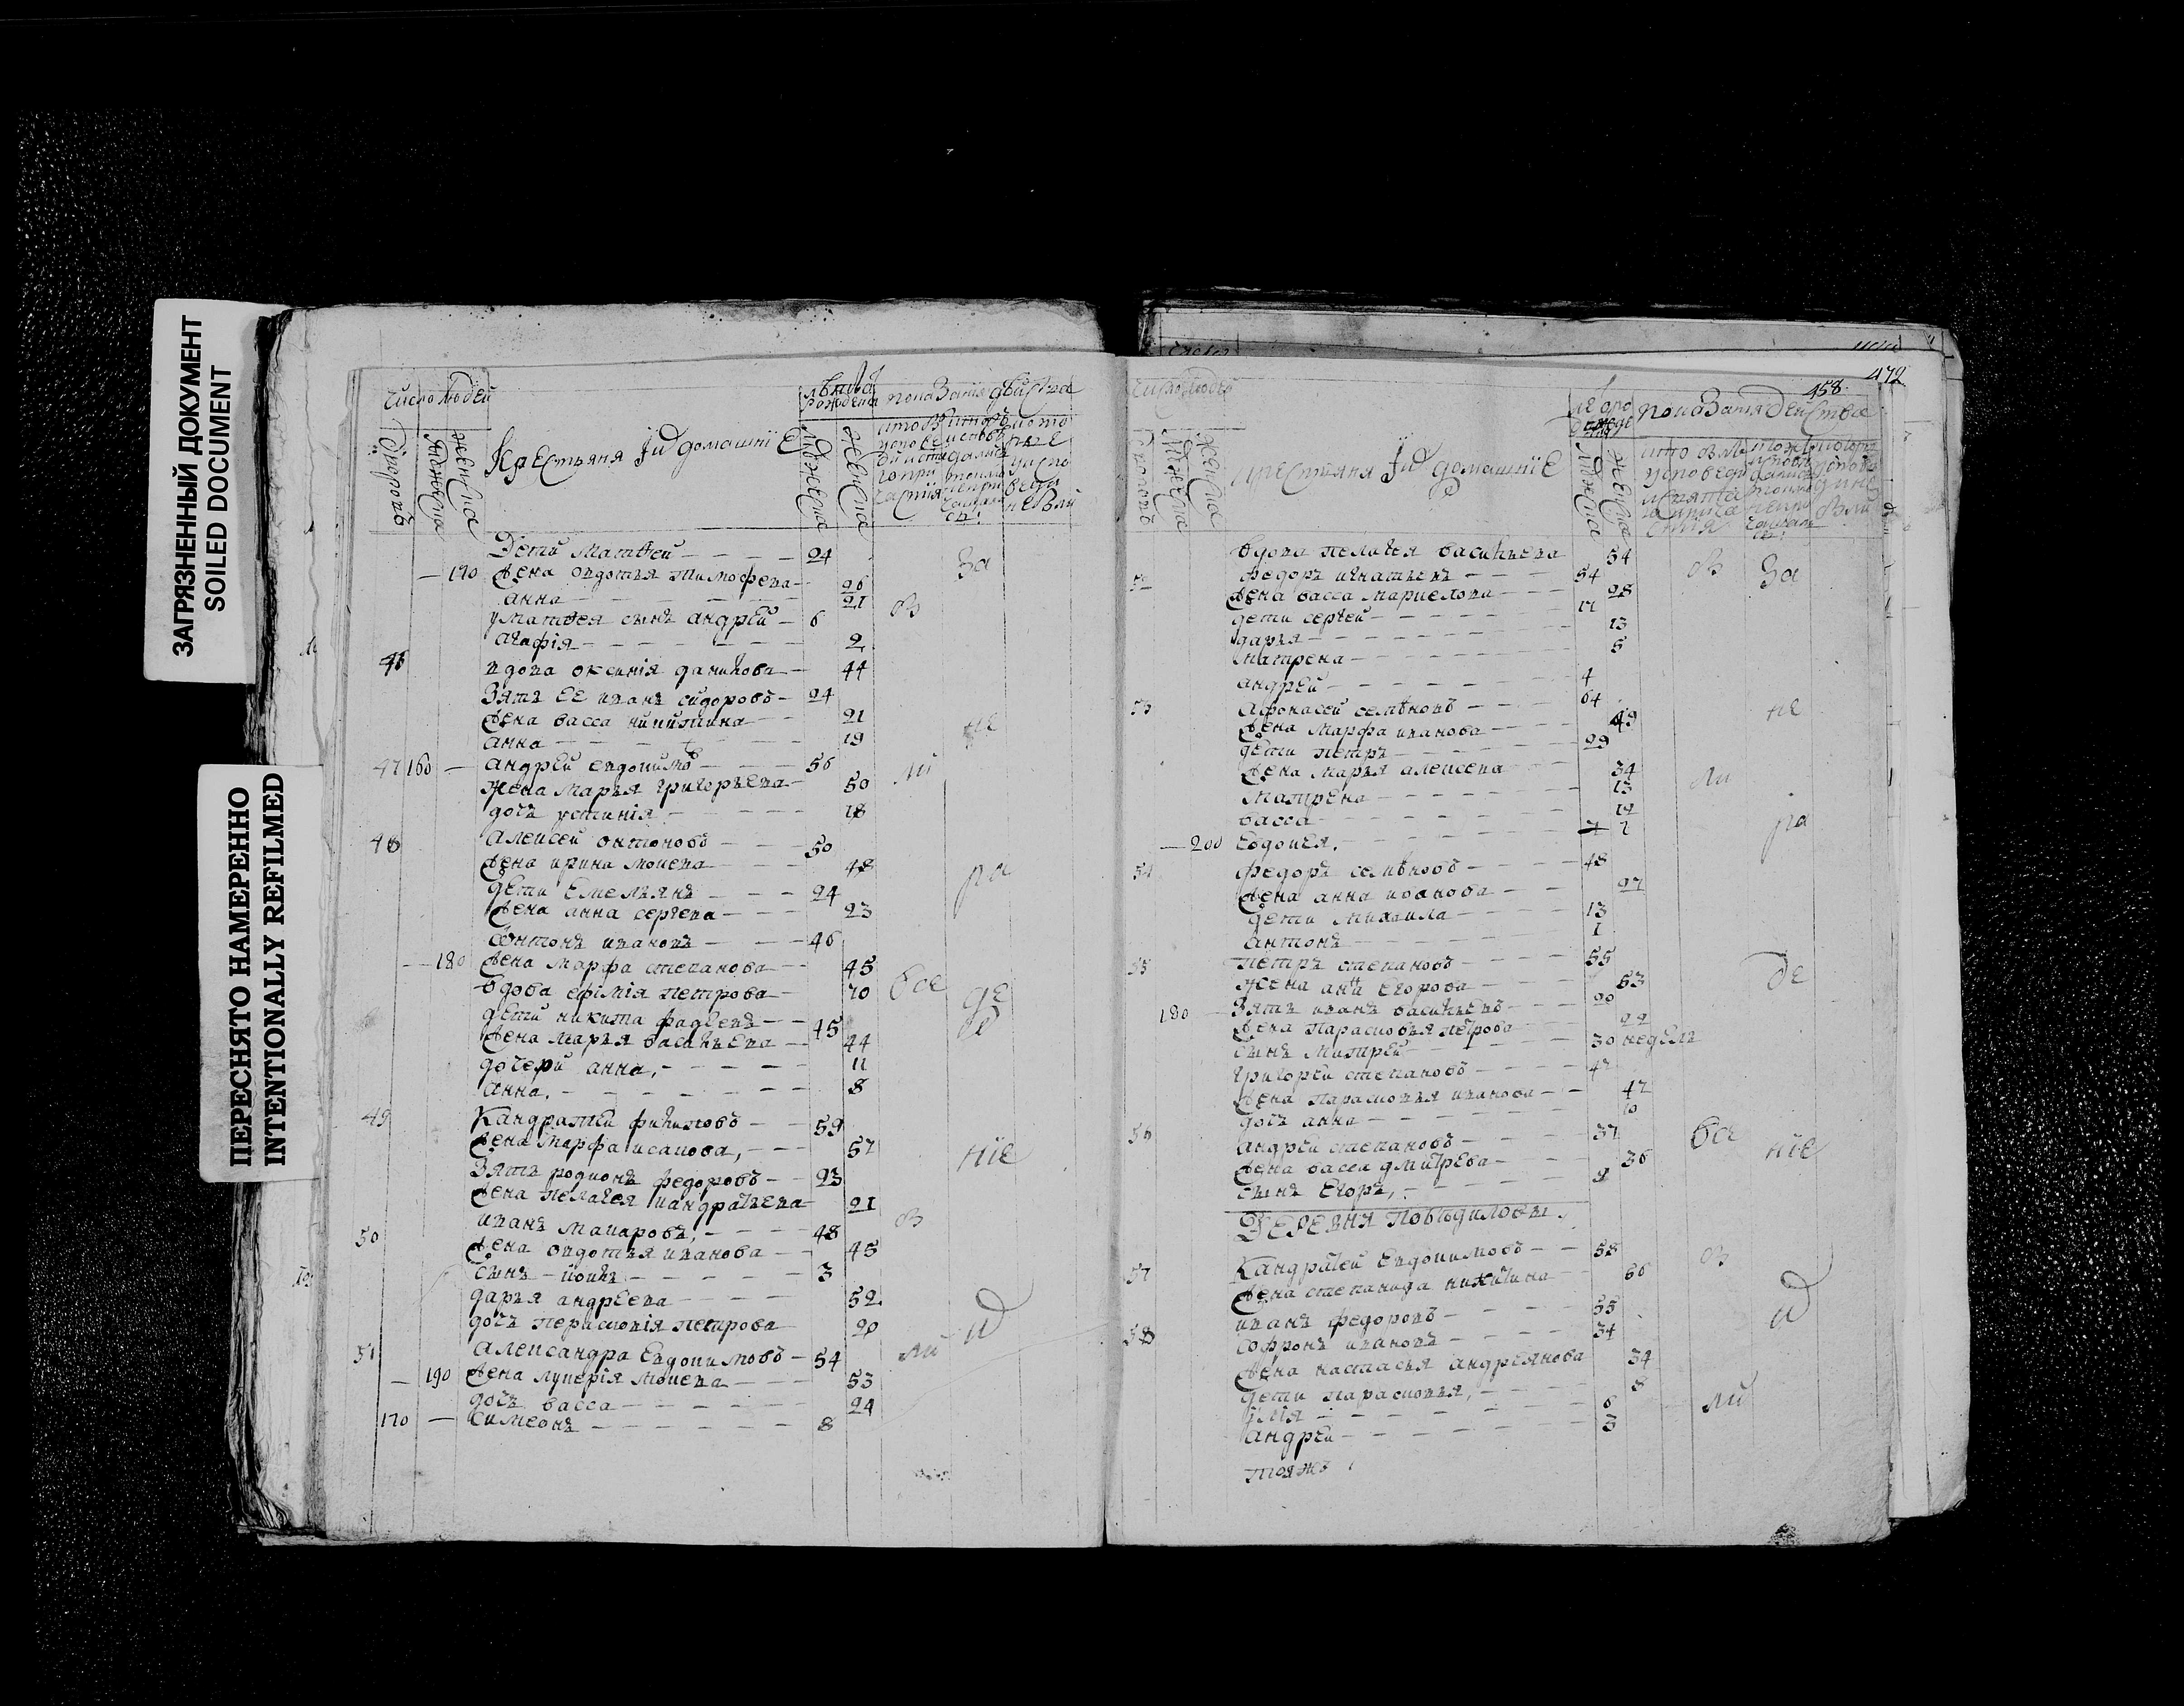 ЗАГРЯЗНЕННЫЙ ДОКУМЕНТ
SOILED DOCUMENT
ПЕРЕСНЯТО НАМЕРЕННО
INTENTIONALLY REFILMED
число людей
дворовъ
мужеска
женска
Крестьяня Їи домашнїе
лѣта рождения
мужеска
женска
показания действа
Дети матѳей 24
170 жена овдотья тимофеева 26
анна 21
у матѳея сынъ андрей 6
агафїя 2
46 вдова оксинїя данилова 44
Зять ее иванъ сидоровъ 24
жена васса никитина 21
анна 19
47 160 андрей евдокимовъ 56
жена марья григорьева 50
дочь устинїя 18
48 алексей онтоновъ 50
жена ирина мокеева 48
дети емельянъ 24
жена анна сергеева 23
Онтонъ ивановъ 46
180 жена марфа степанова 45
вдова ефїмїя петрова 70
дети никита фадеевъ 45
жена марья васильева 44
дочери анна 11
анна 8
49 Кандратей филиповъ 59
жена марфа исакова 57
Зять родионъ федоровъ 23
жена пелагея кандратьева 21
50 иванъ макаровъ 48
жена овдотья иванова 45
сынъ 3
дарья андреева 52
дочь парасковїя петрова 20
51 александра евдокимовъ 54
190 жена лукерїя мокеева 53
дочь васса 24
170 симеонъ 8
за
не
ра
де
нїе
и
въ
ли
все
въ
ли
458
472
число людей
крестьяня Їи домашнїе
мужеска
женска
показания действа
вдова пелагея васильева 54
52 федоръ игнатьевъ 54
жена васса маркелова 28
дети сергей 17
дарья 13
матрена 5
андрей 4
53 афонасей семѣновъ 64
жена марфа иванова 49
дети петръ 29
жена марья алексеева 34
матрена 13
васса 12
200 Евдокея 7
54 федоръ семѣновъ 48
жена анна иванова 27
дети михаила 13
антонъ 1
55 петръ степановъ 55
жена анна егорова 53
180 зять иванъ васильевъ 20
жена парасковья петрова 22
сынъ митрей 30 недель
григорей степановъ 47
жена парасковья иванова 47
дочь анна 10
56 андрей степановъ 37
жена васса дмитрева 36
сынъ егоръ 9
Деревня Побѣдиловы
57 Кандратей Евдокимовъ 58
жена степанида никитина 66
58 иванъ федоровъ 55
софронъ ивановъ 34
жена настасья андреянова 34
дети парасковья 8
илїя 6
андрей 3
тояжъ
въ
за
не
ли
ра
де
все
нїе
въ
и
ли